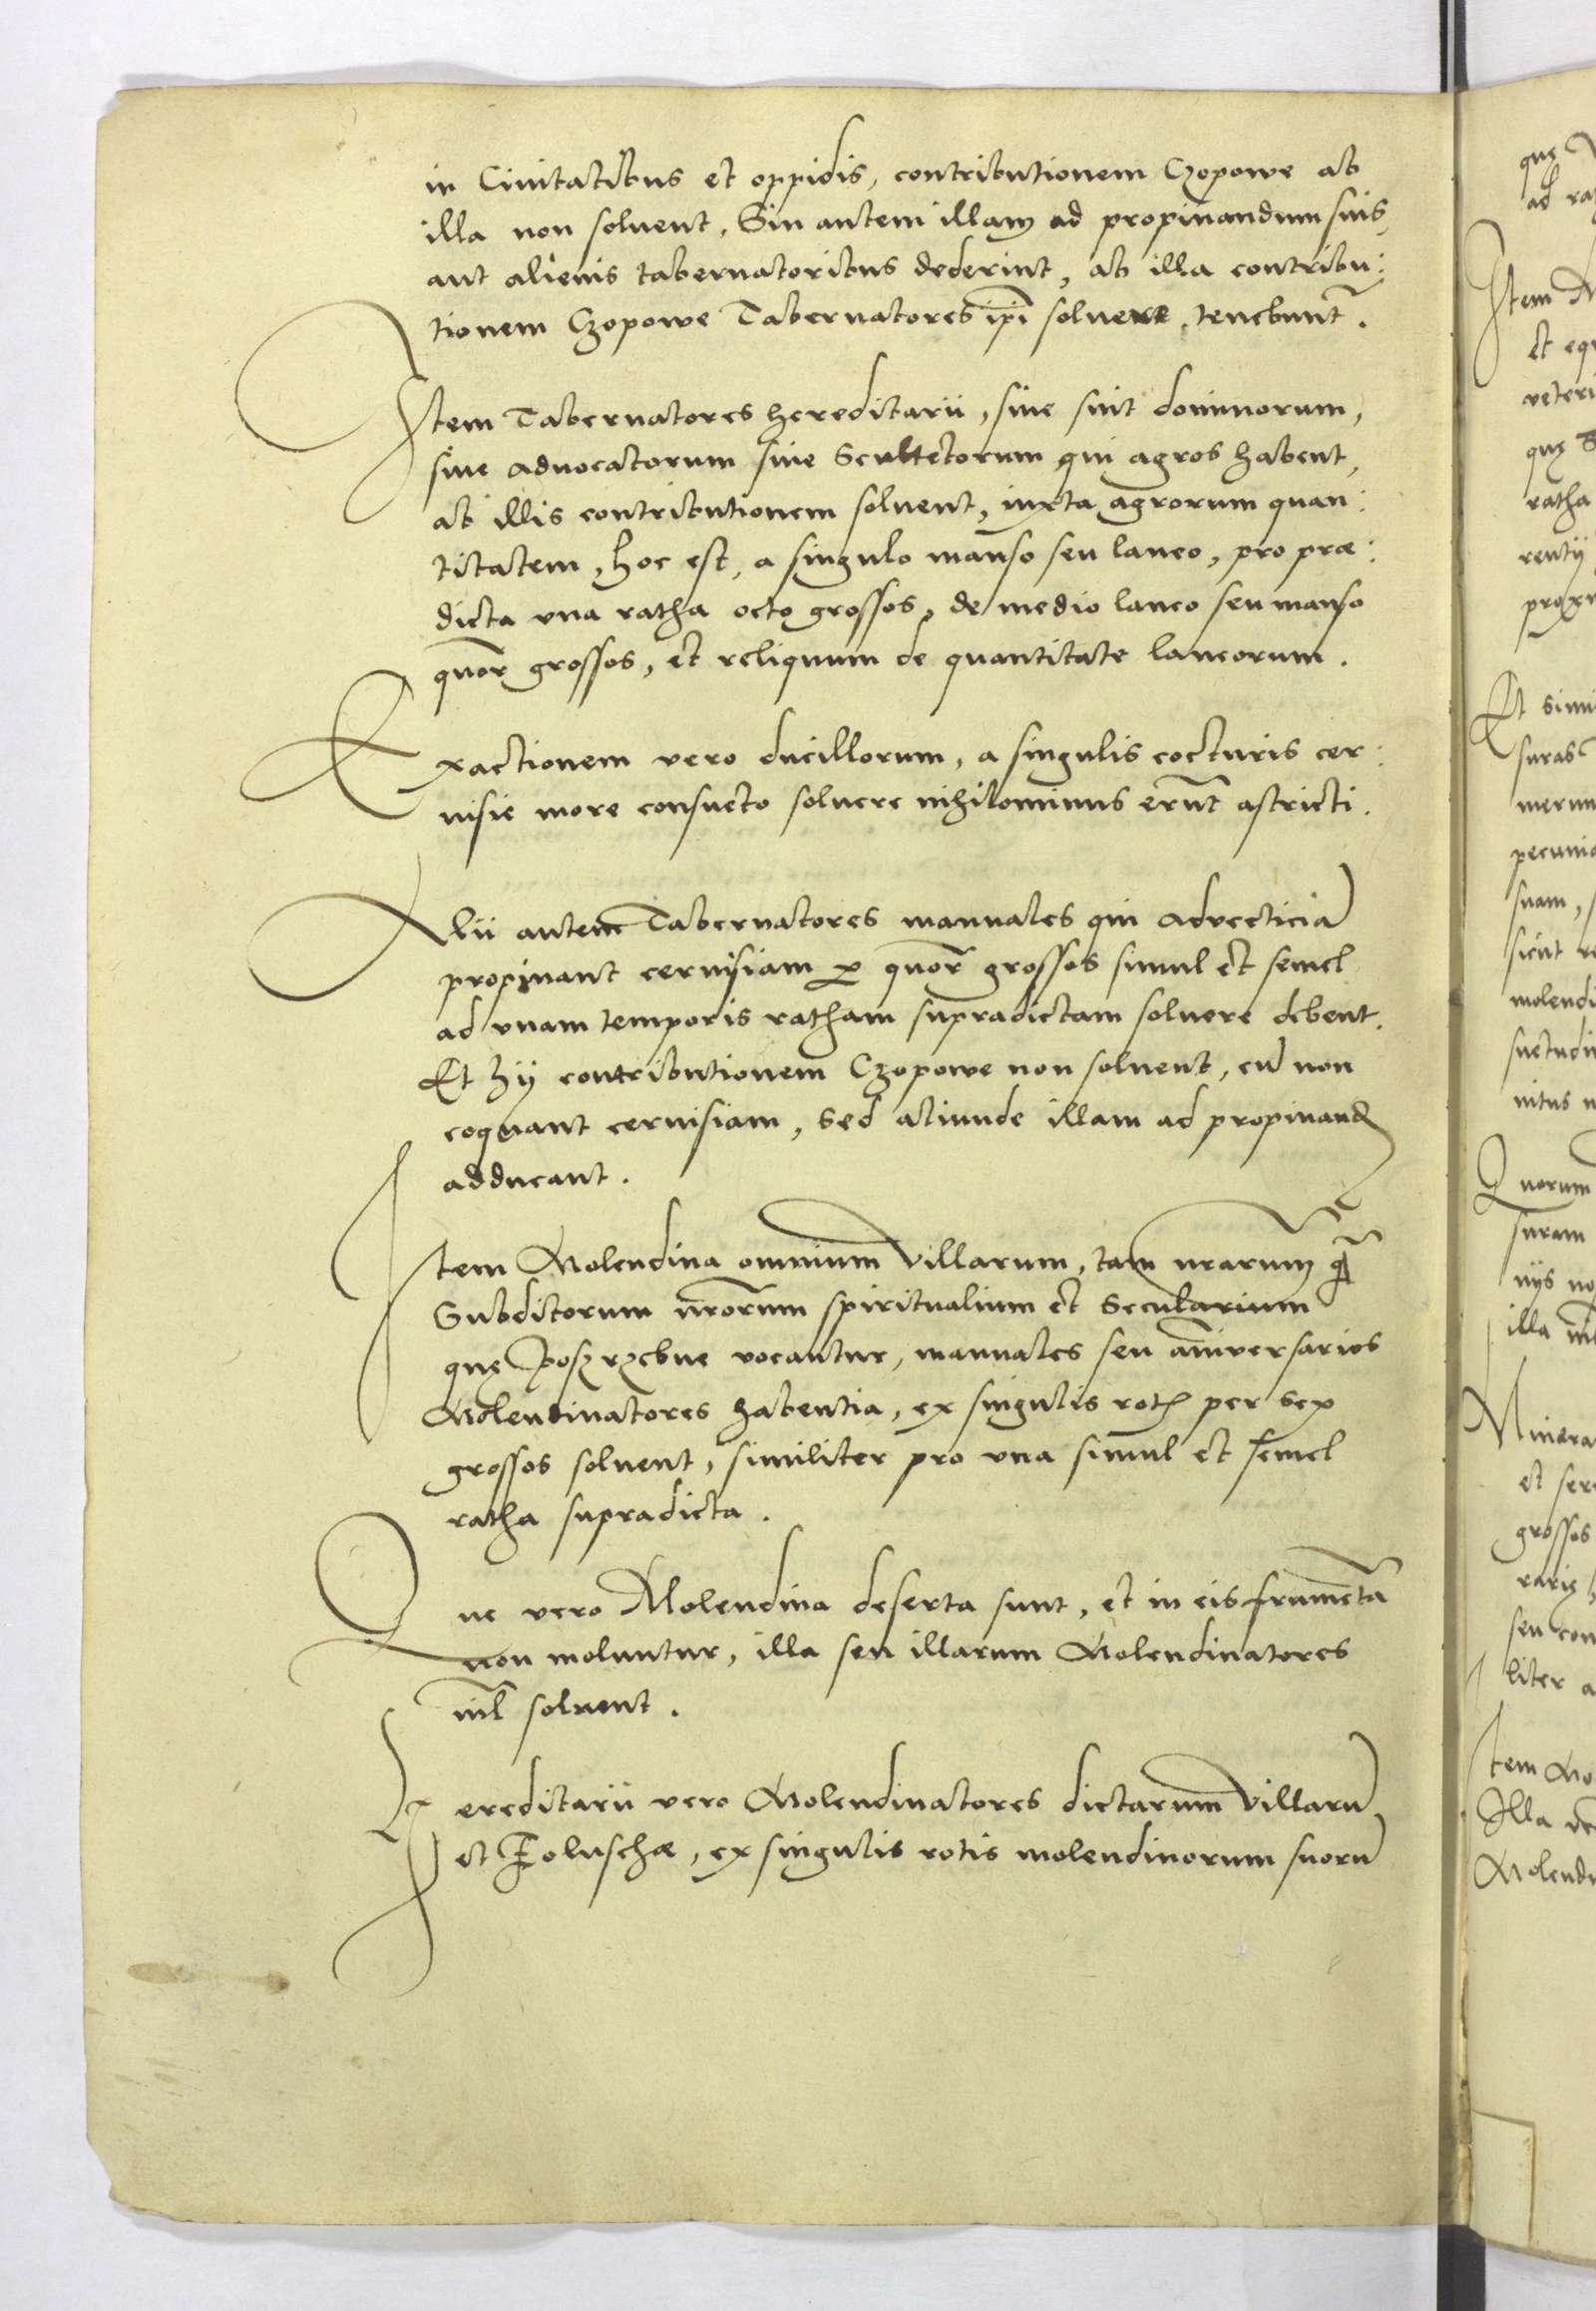 in Ciuitatibus et oppidis, contributionem Czopowe ab
illa non soluent, Sin autem illam ad propinandum suis,
aut alienis tabernatoribus dederint, ab illa contribu:
tionem Czopowe Tabernatores ip̄i soluere, tenebunt̃.
Item Tabernatores hereditarii, siue sint dominorum,
siue aduocatorum siue Scultetorum qui agros habent,
ab illis contributionem soluent, iuxta agrorum quan:
titatem, hoc est, a singulo manso seu laneo, pro præ:
dicta vna ratha octo grossos, de medio laneo seu manso
quor̃ grossos, et reliquum de quantitate laneorum.
Exactionem vero ducillorum, a singulis cocturis cer:
uisie more consueto soluere nihilominus erūt astricti.
Alii autem Tabernatores manuales qui aduecticiā
propinant ceruisiam ꝑ quor̃ grossos simul et semel
ad vnam temporis ratham supradictam soluere debent.
Et hij contributionem Czopowe non soluent, cū non
coquant ceruisiam, sed aliunde illam ad propinand
adducant.
Item Molendina omnium Villarum, tam nr̄arum q̃
Subditorum nr̄orum spiritualium et Secularium
quę Poszrzebne vocantur, manuales seu anīuersarios
Molendinatores habentia, ex singulis rot per sex
grossos soluent, similiter pro vna simul et semel
ratha supradicta.
Que vero Molendina deserta sunt, et in eis frumēta
non moluntur, illa seu illarum Molendinatores
nīl soluent.
Hereditarii vero Molendinatores dictarum Villarū
et Foluschæ, ex singulis rotis molendinorum suorū
quę
ad ra
Item M
et equ
veteri
quę
ratha
rentij
prox
Et simi
suras
merum
pecunia
suam,
sicut
molendi
suetudi
nitus
Quorum
suram
nijs no
illa
Minera
et ser
grossos
rarię
seu con
liter a
Item Mo
Illa
Molendi